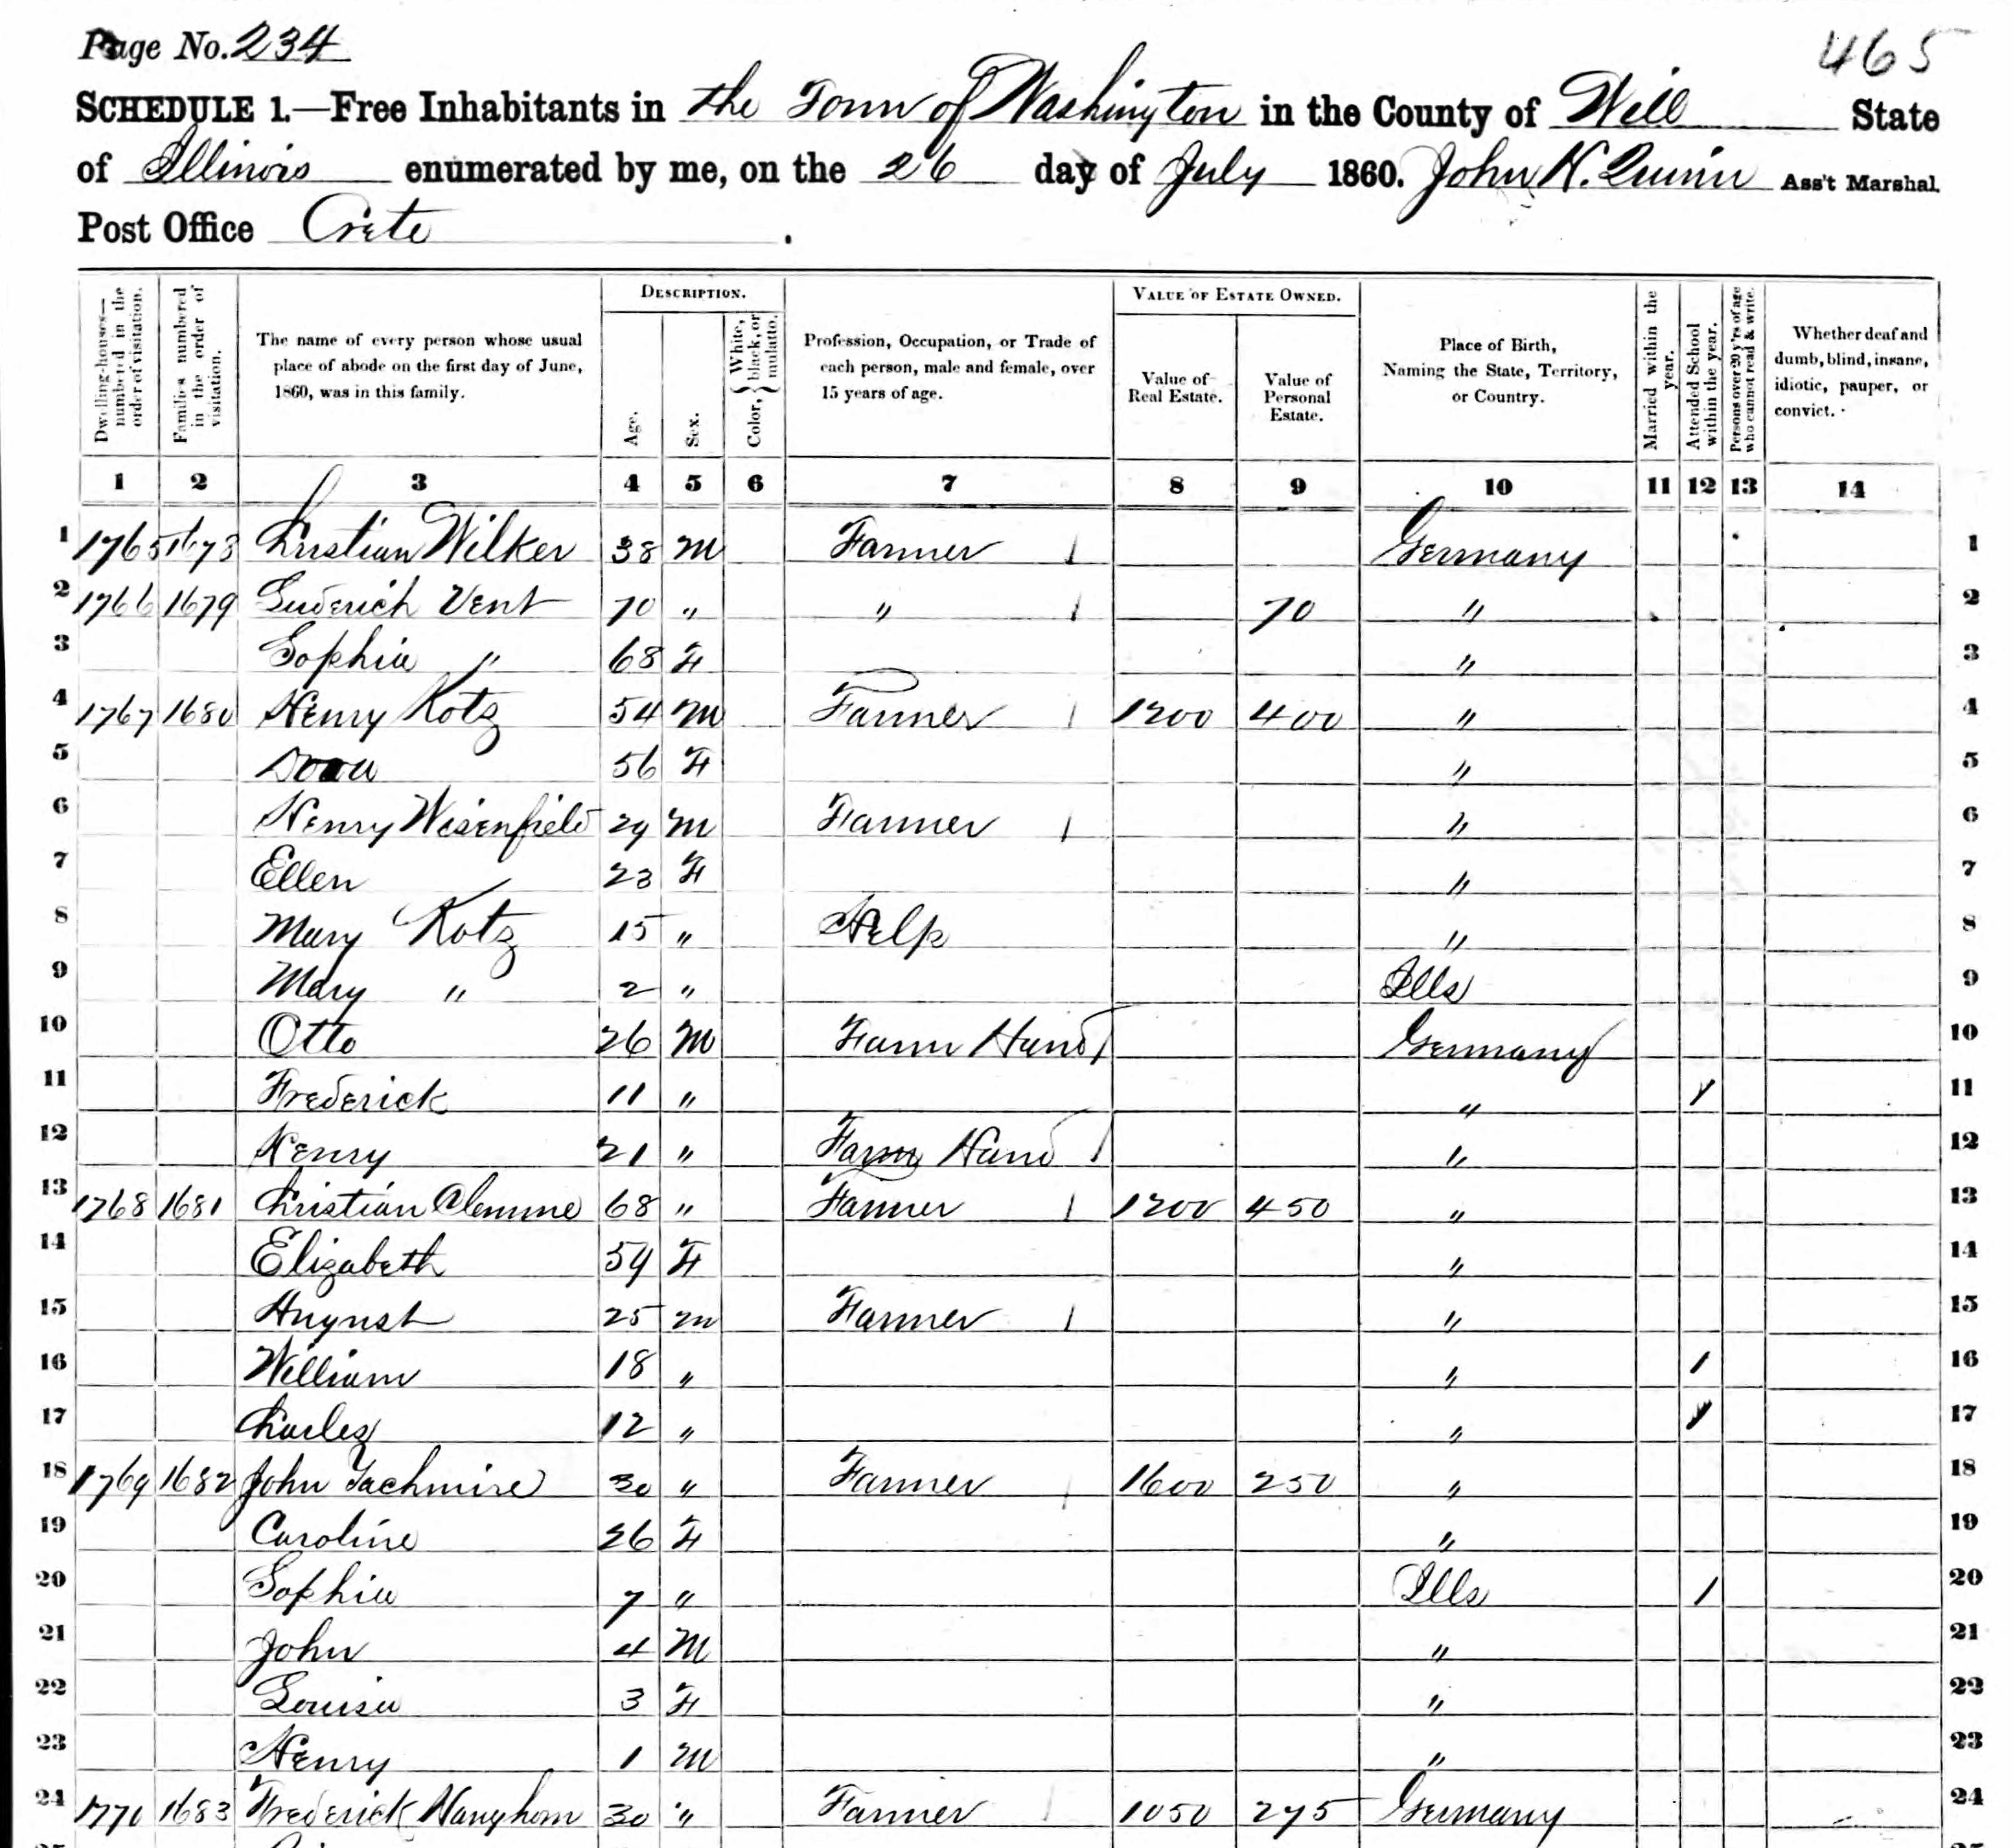 Page No. 234
465
SCHEDULE 1.—Free Inhabitants in the Town of Washington in the County of Will State
of Illinois enumerated by me, on the 26 day of July 1860. John H. Quinn Ass't Marshal.
Post Office Crete .
Dwelling-houses—numbered in the order of visitation.
Families numbered in the order of visitation.
The name of every person whose usual place of abode on the first day of June, 1860, was in this family.
DESCRIPTION.
Age.
Sex.
Color, { White, black, or mulatto.
Profession, Occupation, or Trade of each person, male and female, over 15 years of age.
VALUE OF ESTATE OWNED.
Value of Real Estate.
Value of Personal Estate.
Place of Birth, Naming the State, Territory, or Country.
Married within the year.
Attended School within the year.
Persons over 20 y'rs of age who cannot read & write.
Whether deaf and dumb, blind, insane, idiotic, pauper, or convict.
1 2 3 4 5 6 7 8 9 10 11 12 13 14
1 1765 1678 Christian Wilker 38 M Farmer / Germany 1
2 1766 1679 Vent 70 " " / 70 " 2
3 Sophia " 68 F " 3
4 1767 1680 Henry Kotz 54 M Farmer / 1200 400 " 4
5 56 F " 5
6 Henry Wisenfield 29 M Farmer / " 6
7 Ellen 23 F " 7
8 Mary Kotz 15 " Help " 8
9 Mary " 2 " Ills 9
10 Otto 26 M Farm Hand / Germany 10
11 Frederick 11 " " / 11
12 Henry 21 " Farm Hand / " 12
13 1768 1681 Christian Clemme 68 " Farmer / 1200 450 " 13
14 Elizabeth 59 F " 14
15 August 25 m Farmer / " 15
16 William 18 " " / 16
17 Charles 12 " " / 17
18 1769 1682 John Tachmire 30 " Farmer / 1600 250 " 18
19 Caroline 26 F " 19
20 Sophia 7 " Ills / 20
21 John 4 M " 21
22 Louisa 3 F " 22
23 Henry 1 M " 23
24 1770 1683 Frederick Hanghorn 30 " Farmer / 1050 275 Germany 24